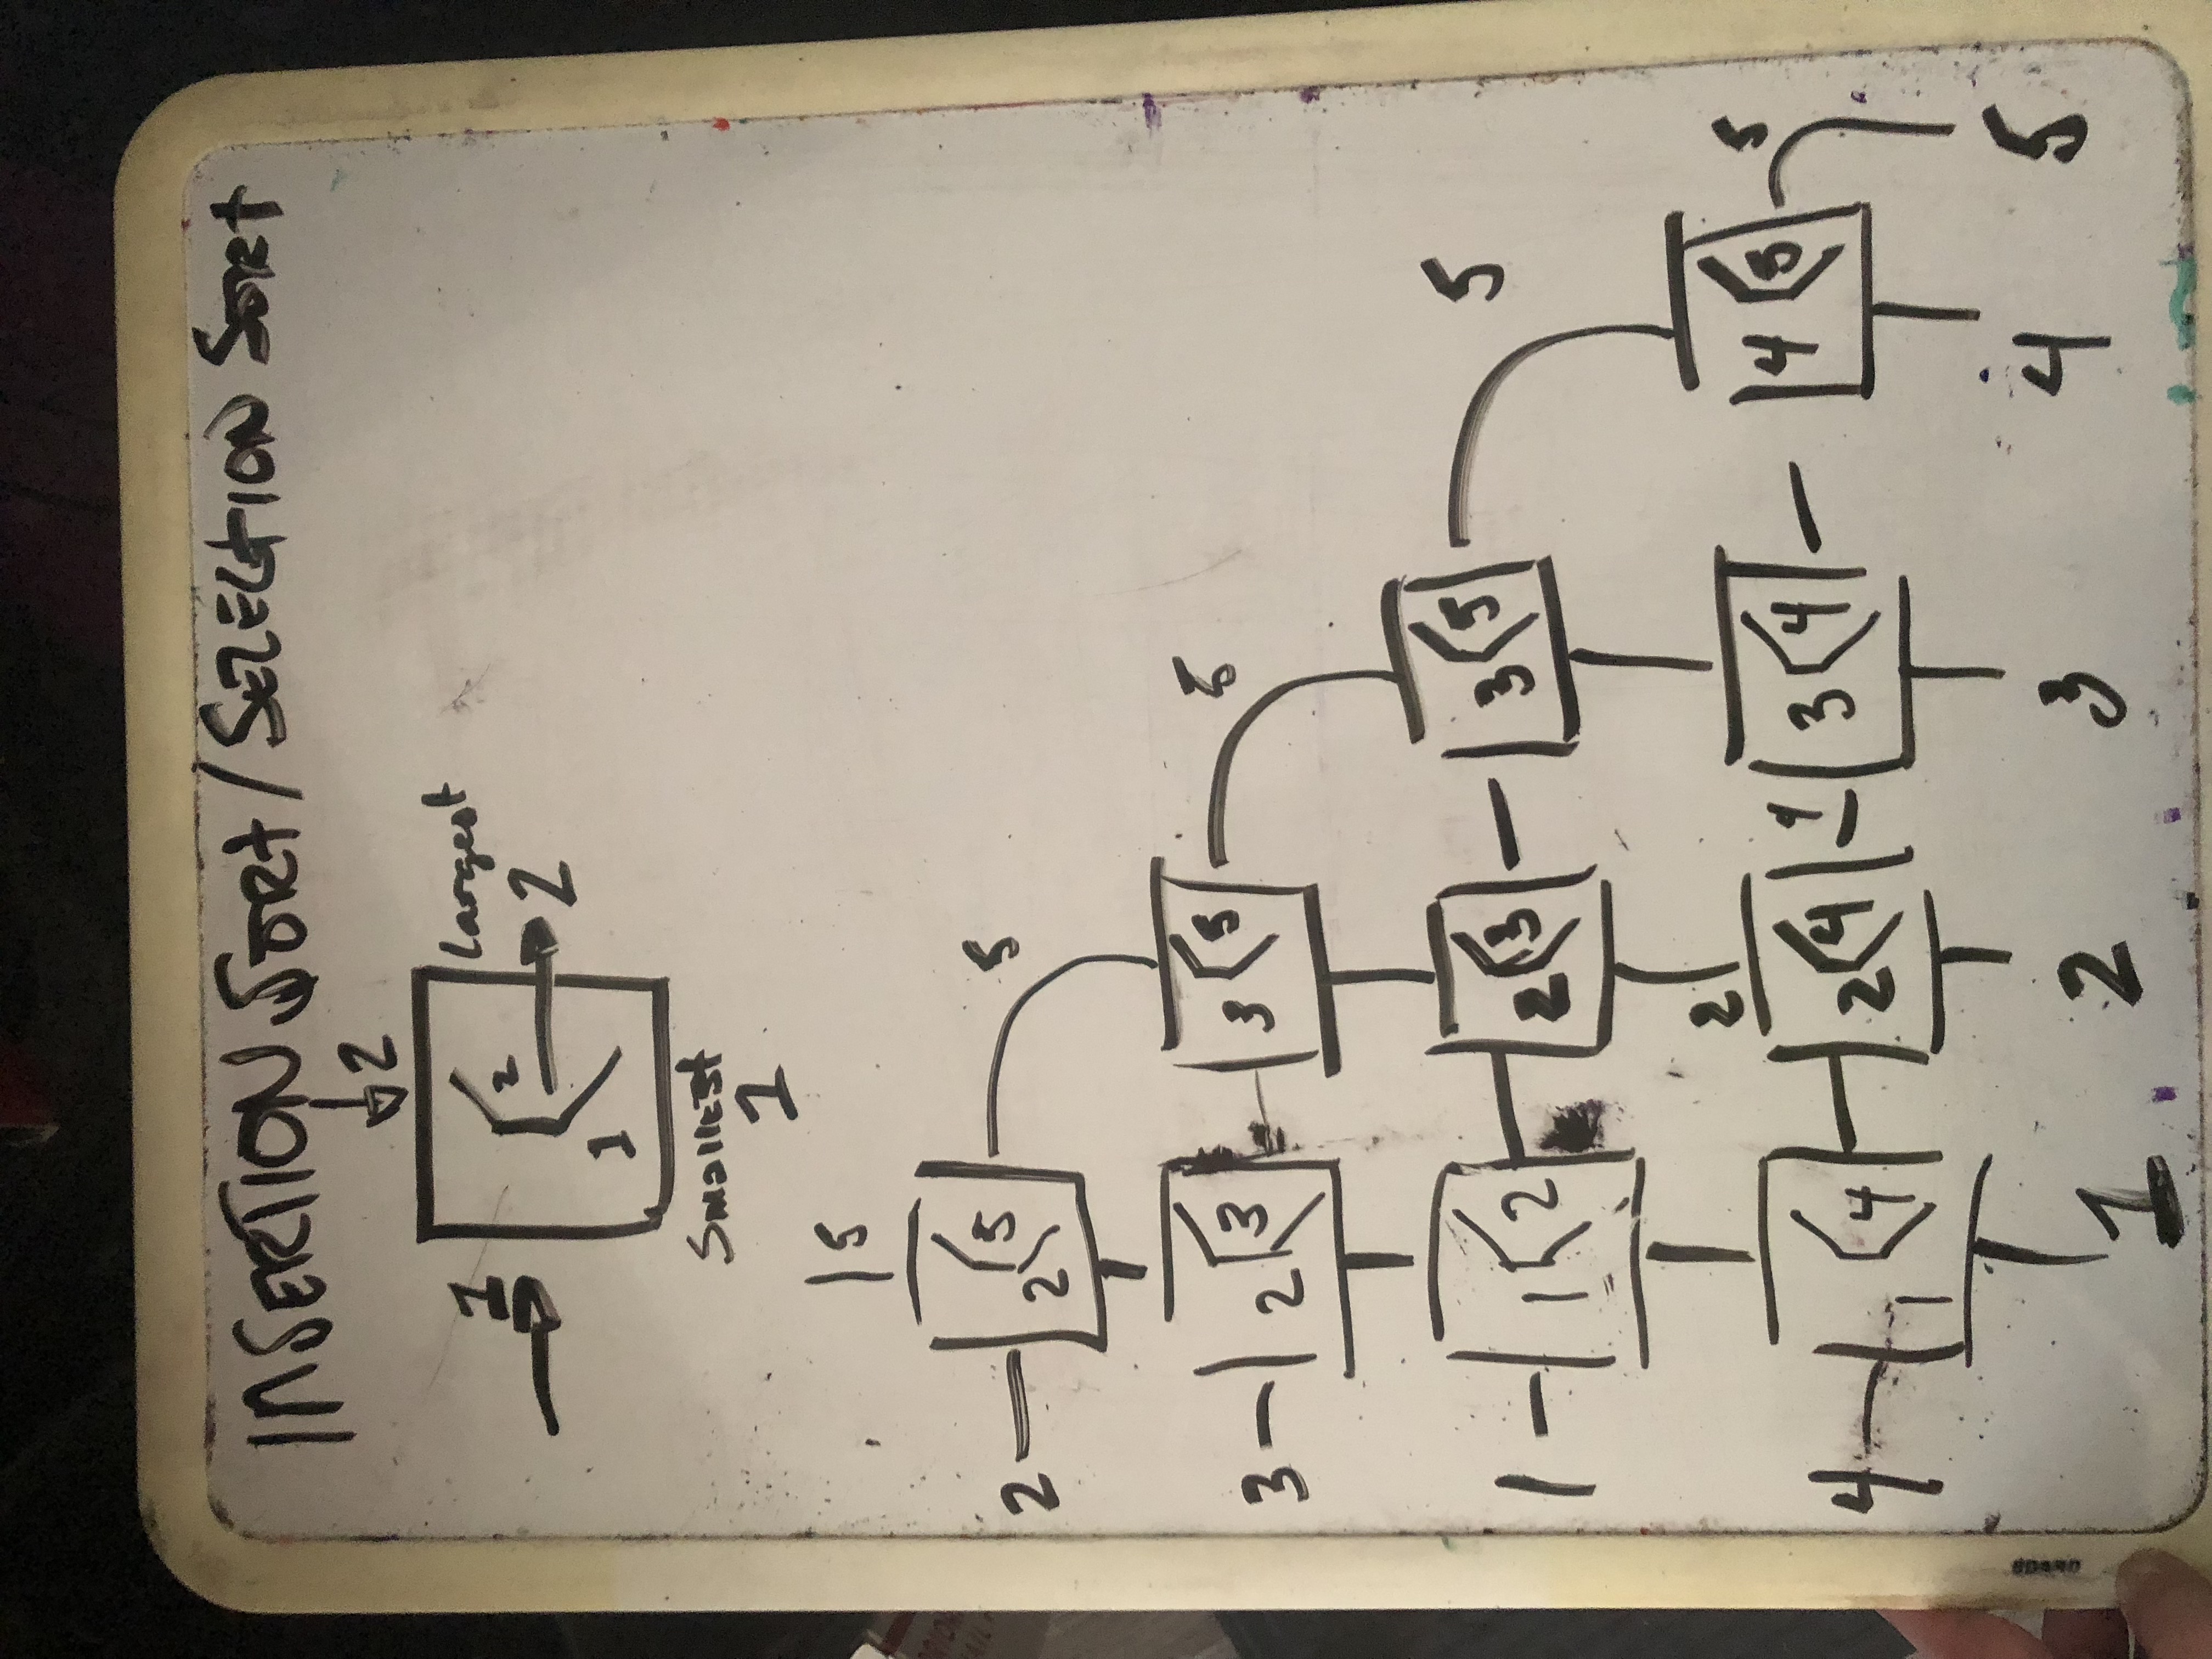 INSERTION SORT / SELECTION SORT
2
1
Largest
2
2
1
Smallest
1
5
2
2 5
5
3
2 3
3 5
5
1
1 2
2 3
3 5
5
2
4
1 4
2 4
4
3 4
4 5
5
1
2
3
4
5